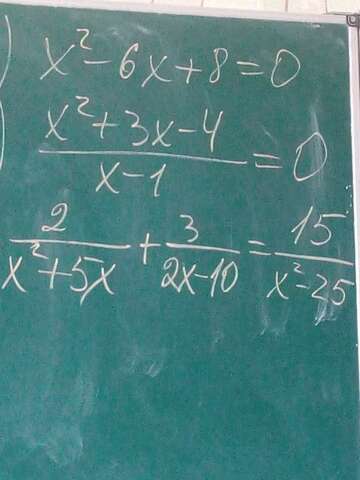 x² - 6x + 8 = 0
(x² + 3x - 4)/(x - 1) = 0
2/(x² + 5x) + 3/(2x - 10) = 15/(x² - 25)